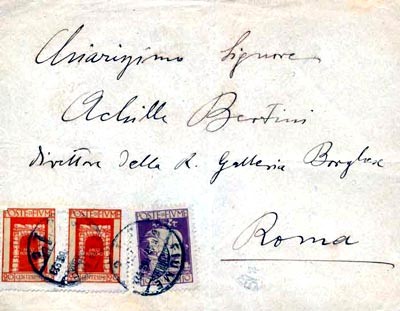 Chiarissimo Signore
Achille Bertini
direttore della R. Galleria Borghese
Roma
POSTE·FIUME
POSTE·FIUME
POSTE·FIUME
FIUME